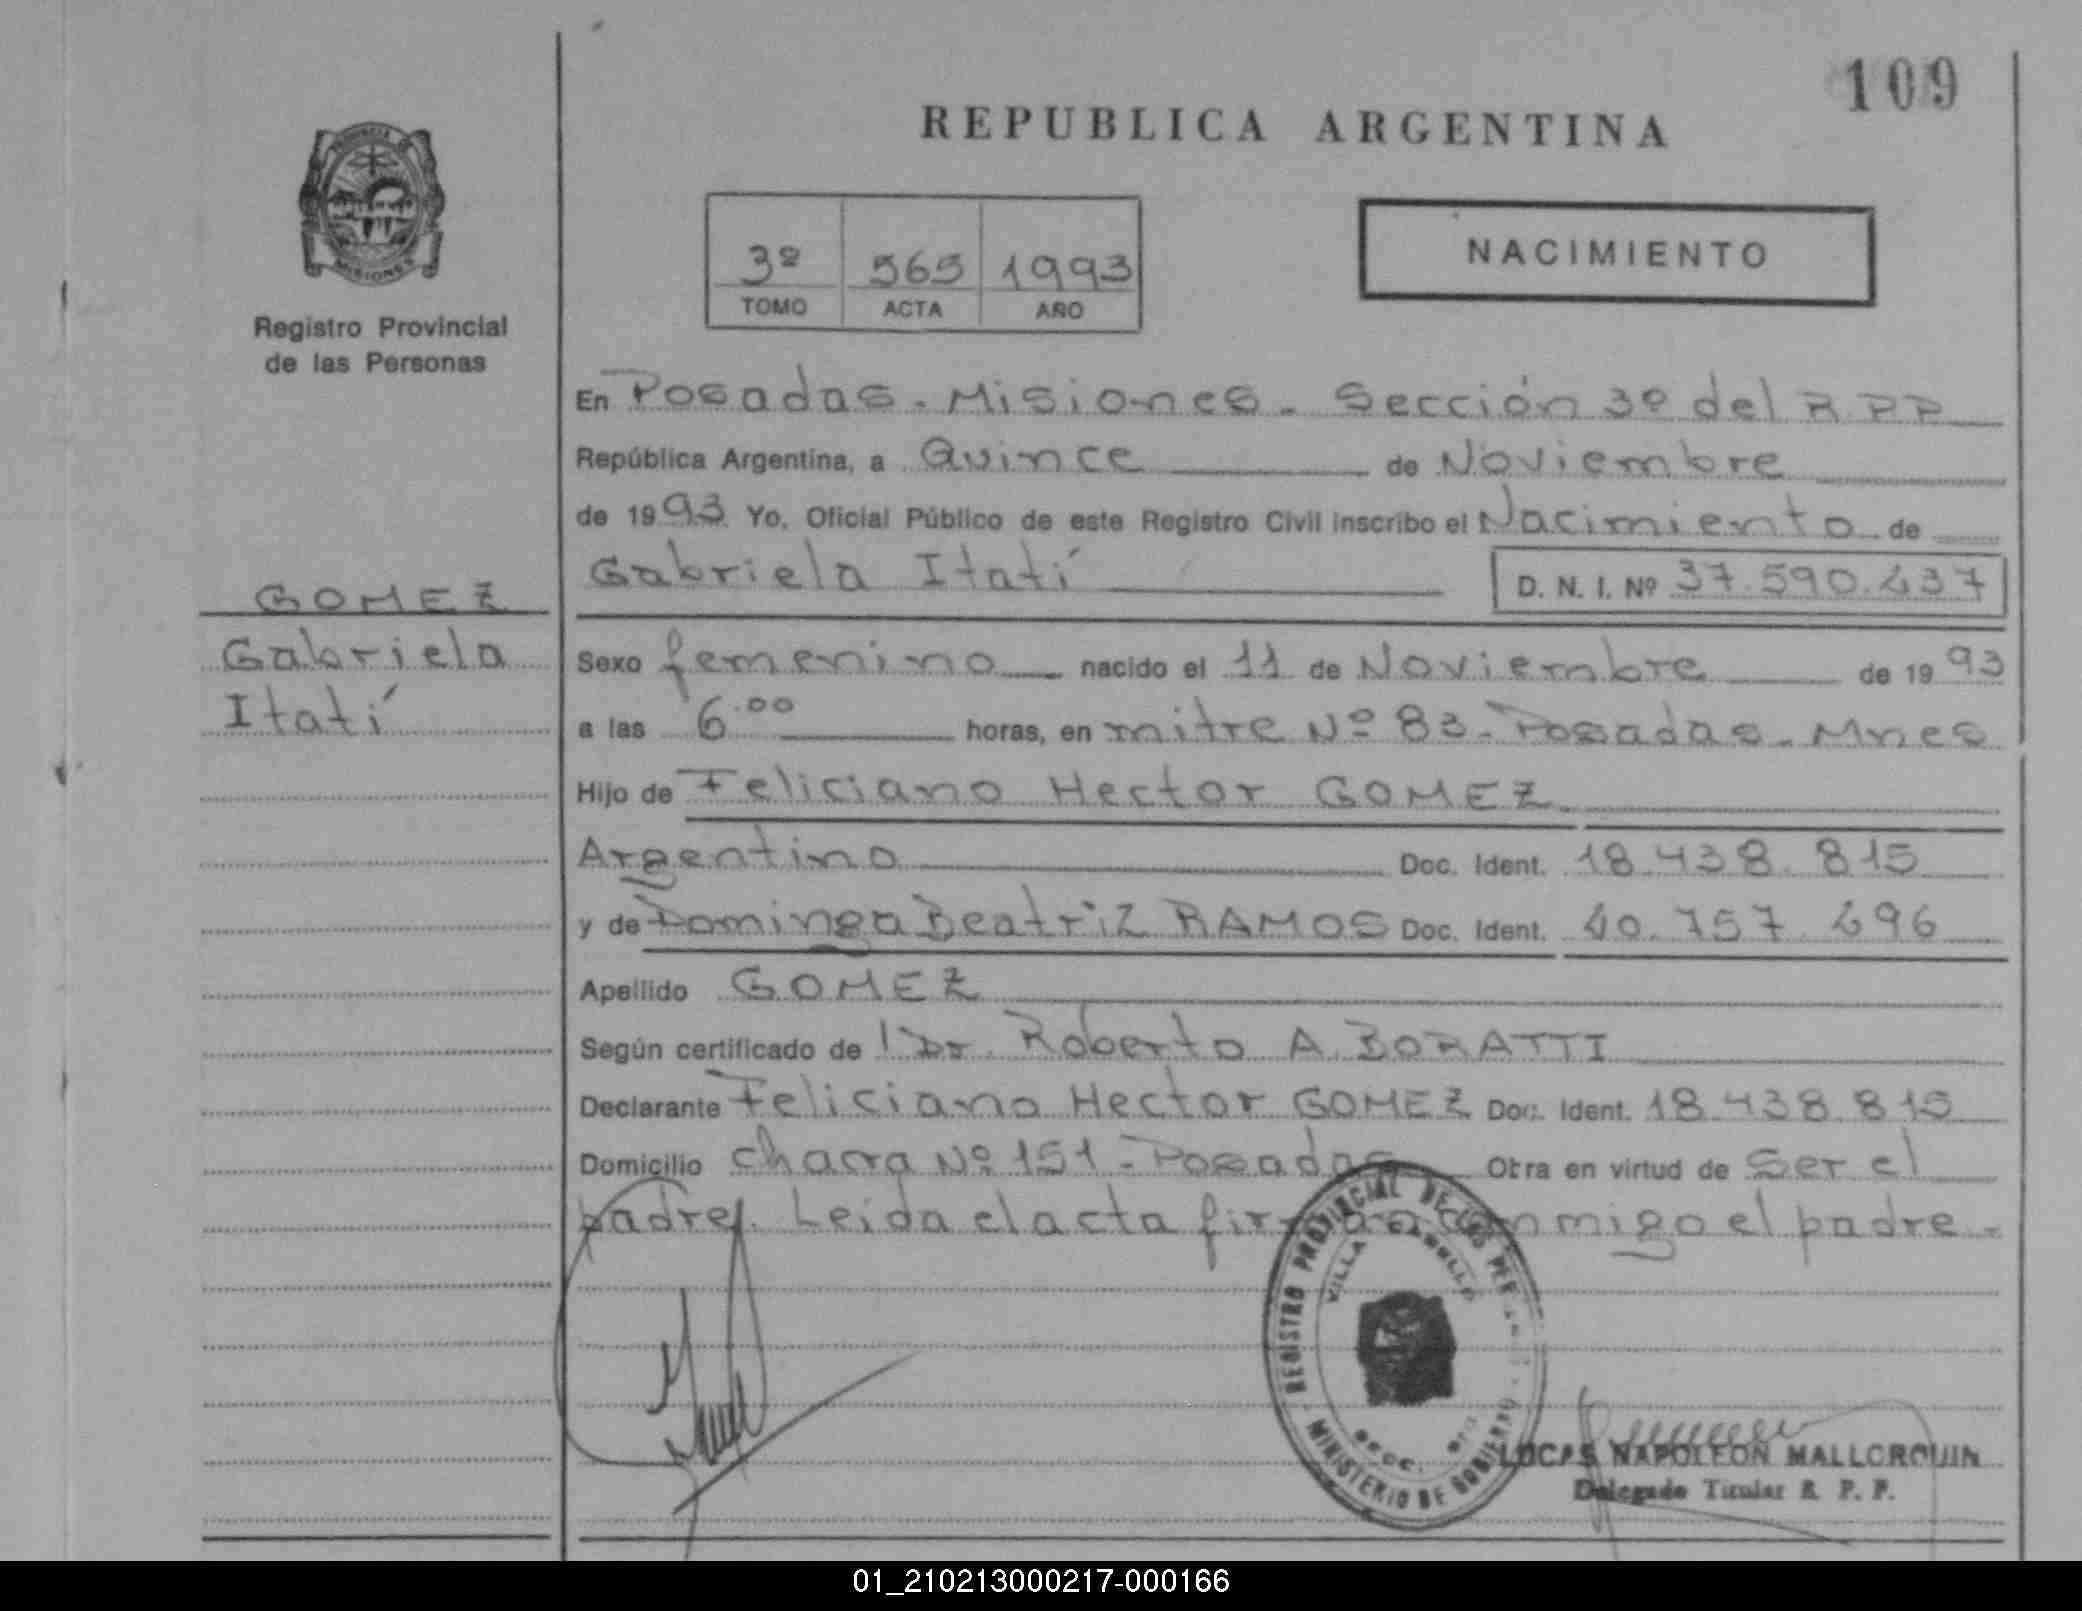 109
REPUBLICA ARGENTINA
PROVINCIA DE
MISIONES
Registro Provincial
de las Personas
3º 565 1993
TOMO ACTA AÑO
NACIMIENTO
En Posadas - Misiones - Sección 3º del R.P.P
República Argentina, a Quince de Noviembre
de 1993 Yo, Oficial Público de este Registro Civil inscribo el Nacimiento de
Gabriela Itatí D. N. I. Nº 37.590.437
GOMEZ
Gabriela
Itatí
Sexo femenino nacido el 11 de Noviembre de 1993
a las 6.00 horas, en mitre Nº 83 - Posadas - Mnes
Hijo de Feliciano Hector GOMEZ
Argentino Doc. Ident. 18.438.815
y de Dominga Beatriz RAMOS Doc. Ident. 40.757.496
Apellido GOMEZ
Según certificado de Dr. Roberto A. BORATTI
Declarante Feliciano Hector GOMEZ Doc. Ident. 18.438.815
Domicilio chacra Nº 151 - Posadas Obra en virtud de Ser el
padre. Leida el acta firma conmigo el padre -
REGISTRO PROVINCIAL DE LAS PER
VILLA CABELLO
MINISTERIO DE GOBIERNO
LUCAS NAPOLEON MALLORQUIN
Delegado Titular R. P. P.
01_210213000217-000166